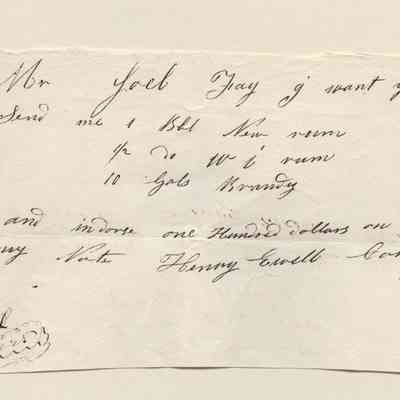 Mr Joel Fay I want
Send me 1 Bbl New rum
1/2 do W i rum
10 Gals Brandy
and indorse one Hundred dollars on
my Note Henry Ewell